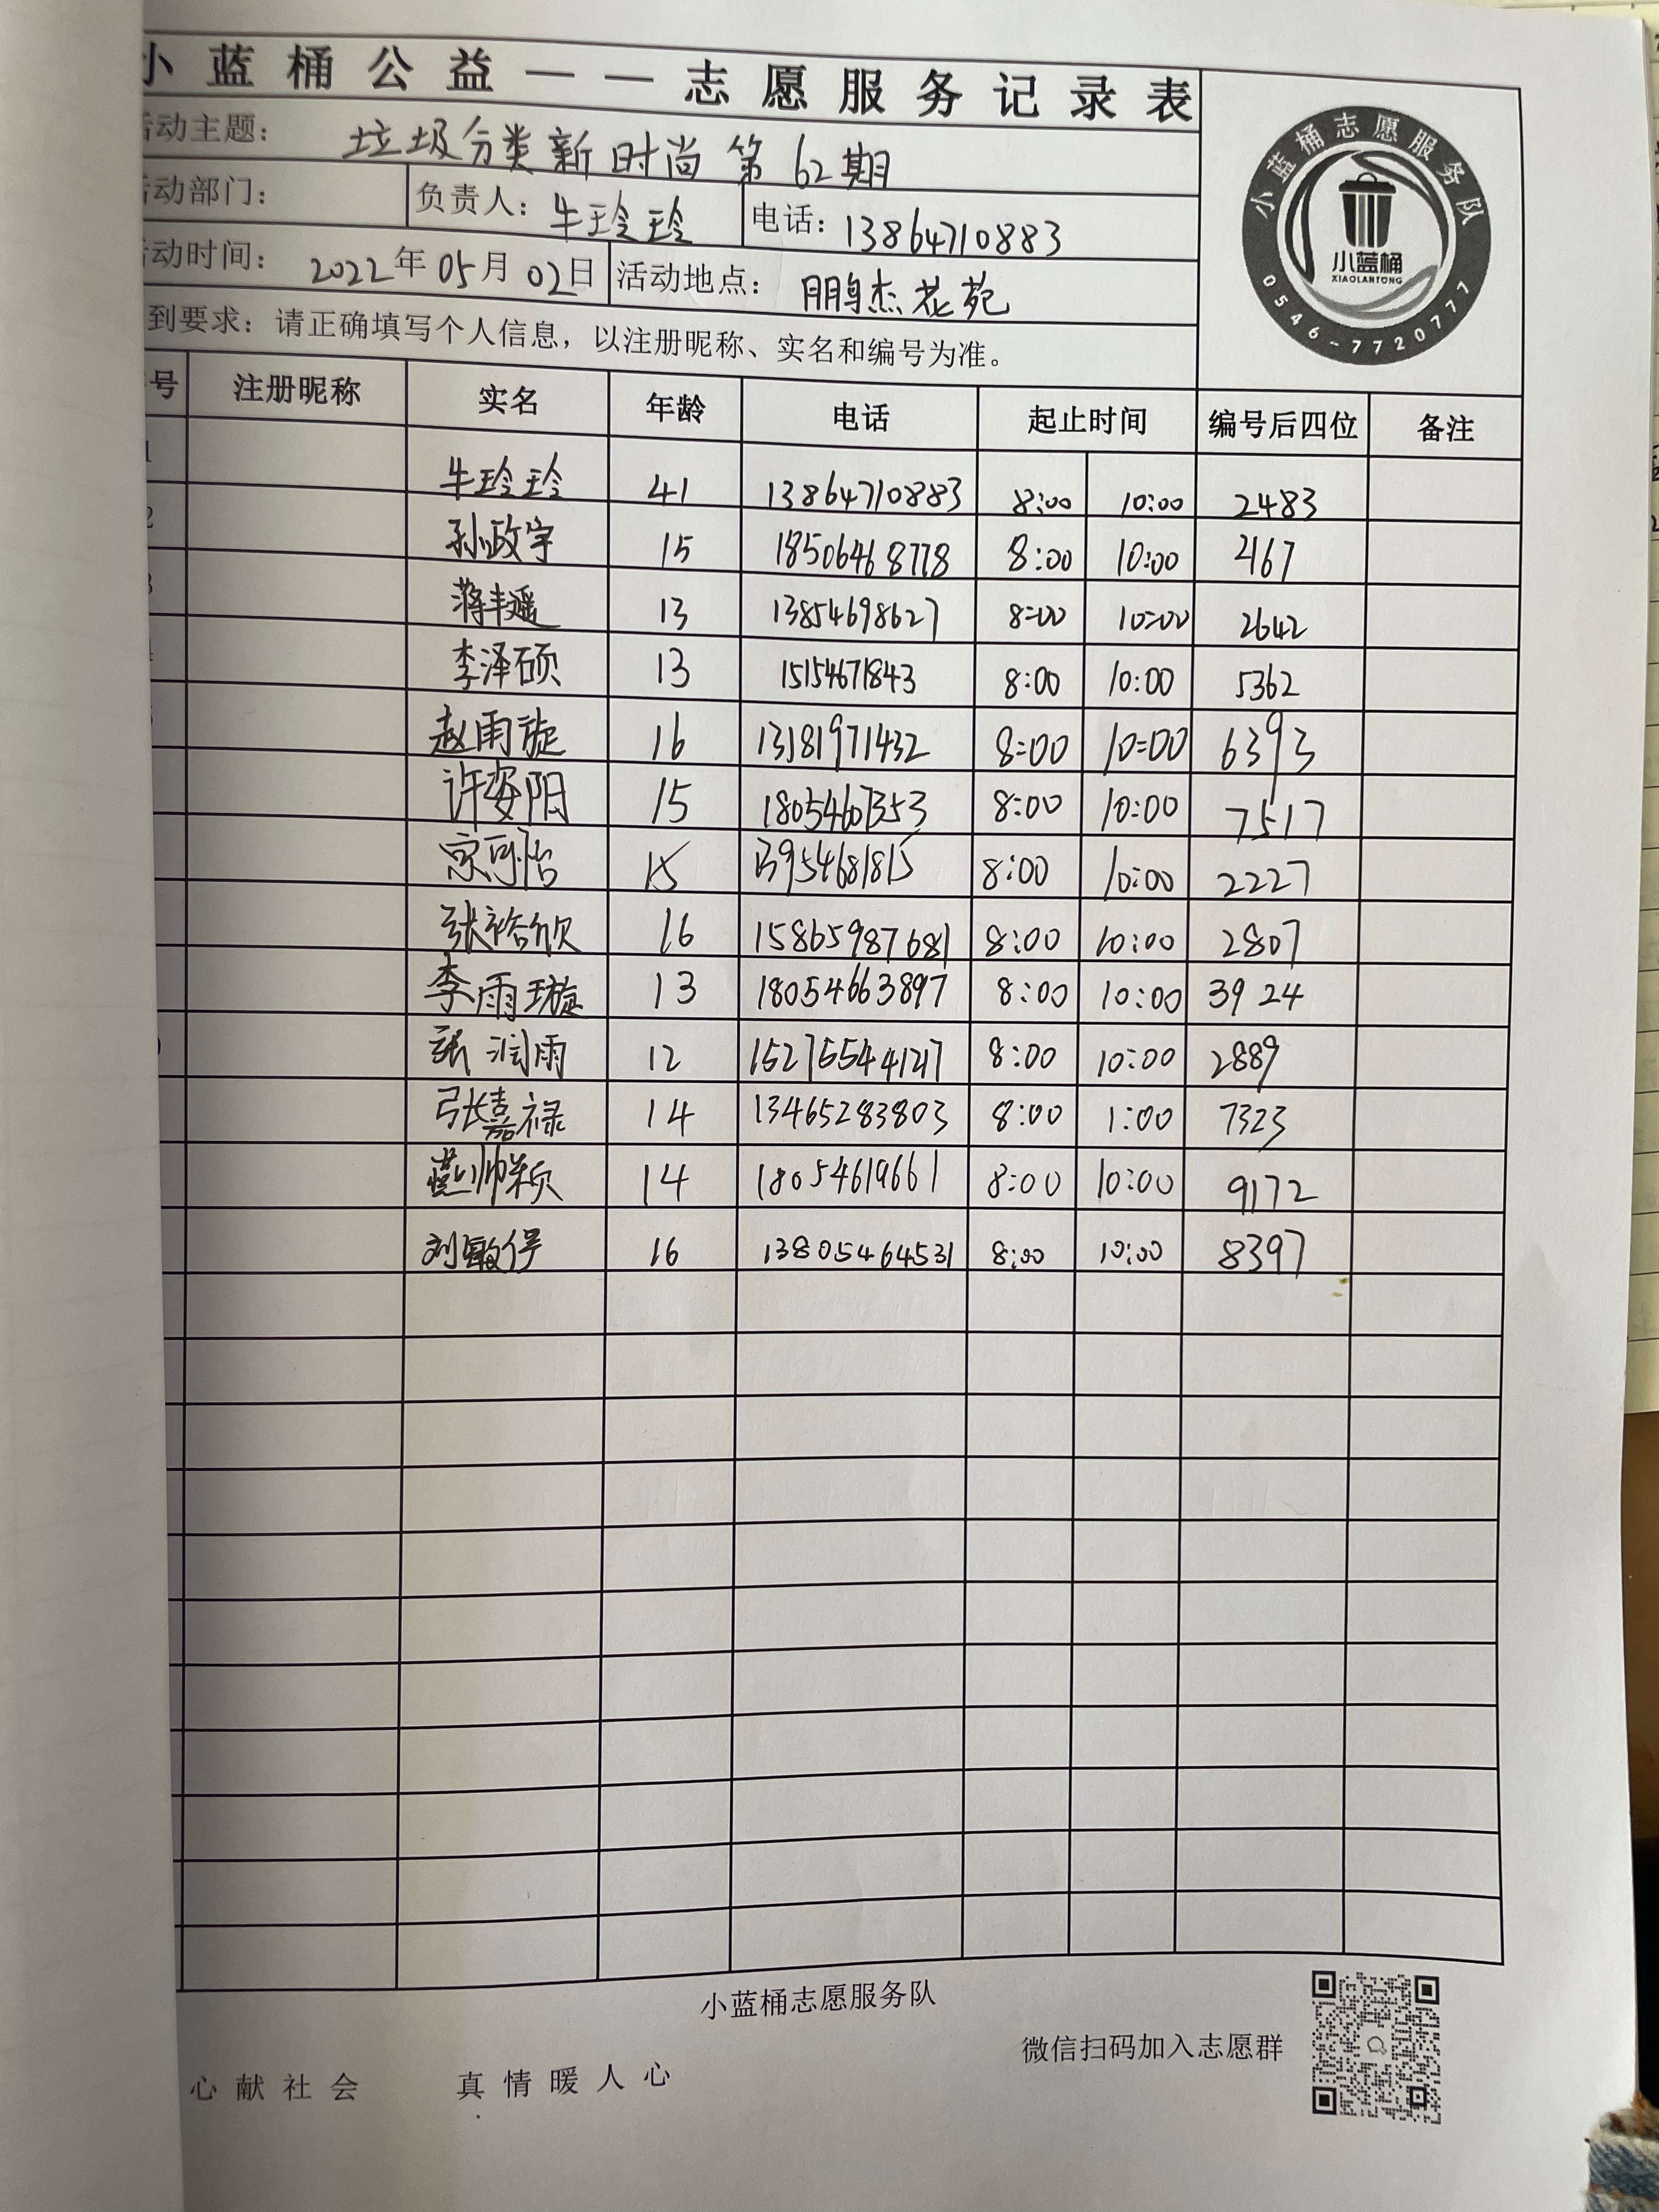 小蓝桶公益——志愿服务记录表
活动主题： 垃圾分类新时尚 第62期
活动部门： 负责人：牛玲玲 电话：13864710883
活动时间： 2022年05月02日 活动地点： 鹏杰花苑
到要求：请正确填写个人信息，以注册昵称、实名和编号为准。
小蓝桶志愿服务队
小蓝桶
XIAOLANTONG
0546-7720777
号 注册昵称 实名 年龄 电话 起止时间 编号后四位 备注
1 牛玲玲 41 13864710883 8:00 10:00 2483
2 孙政宇 15 18506468778 8:00 10:00 2167
3 蒋丰遥 13 13854698627 8:00 10:00 2642
4 李泽硕 13 15154671843 8:00 10:00 5362
5 赵雨旋 16 13181971432 8:00 10:00 6393
许姿阳 15 18054607353 8:00 10:00 7517
宗可怡 15 13954681815 8:00 10:00 2227
张裕欣 16 15865987681 8:00 10:00 2807
李雨璇 13 18054663897 8:00 10:00 3924
張润雨 12 8:00 10:00 2889
张嘉禄 14 13465283803 8:00 1:00 7323
14 18054619661 8:00 10:00 9172
刘敏 16 13805464531 8:00 10:00 8397
小蓝桶志愿服务队
微信扫码加入志愿群
心献社会 真情暖人心